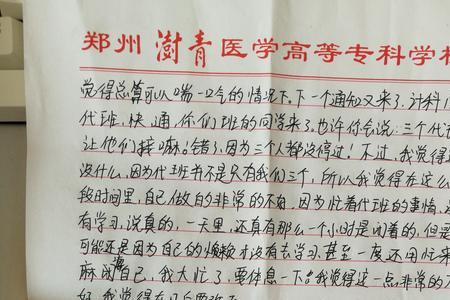 郑州澍青医学高等专科学校
觉得总算可以喘一口气的情况下。下一个通知又来了,计科1
代班,快通,你们班的回消来了。也许你会说:三个代
让他们接嘛。错!因为三个人都没停过!不过,我觉得
没什么,因为代班书不是只有我们三个,所以我觉得在这么
段时间里,自己做的非常的不有,因为忙着代班的事情,
有学习,说真的,一天里,还真有那么一个小时是闲着的,但是
可能还是因为自己的懒才没有去学习,甚至一度还用忙来
麻痹自己,我太忙了,要休息一下。我觉得这一点非常的
好,我觉得在